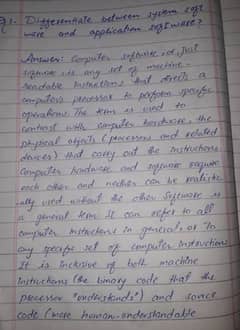 Q1- Differentiate between system soft
ware and application software?
Answer: Computer software or just
software is any set of machine-
readable instructions that directs a
computer's processor to perform specific
operations. The term is used to
contrast with computer hardware, the
physical objects (processor and related
devices) that carry out the instructions
Computer hardware and software require
each other and neither can be realistic
ally used without the other. Software is
a general term. It can refer to all
computer instructions in general, or to
any specific set of computer instructions
It is inclusive of both machine
instructions (the binary code that the
processor "understands") and source
code (more human-understandable